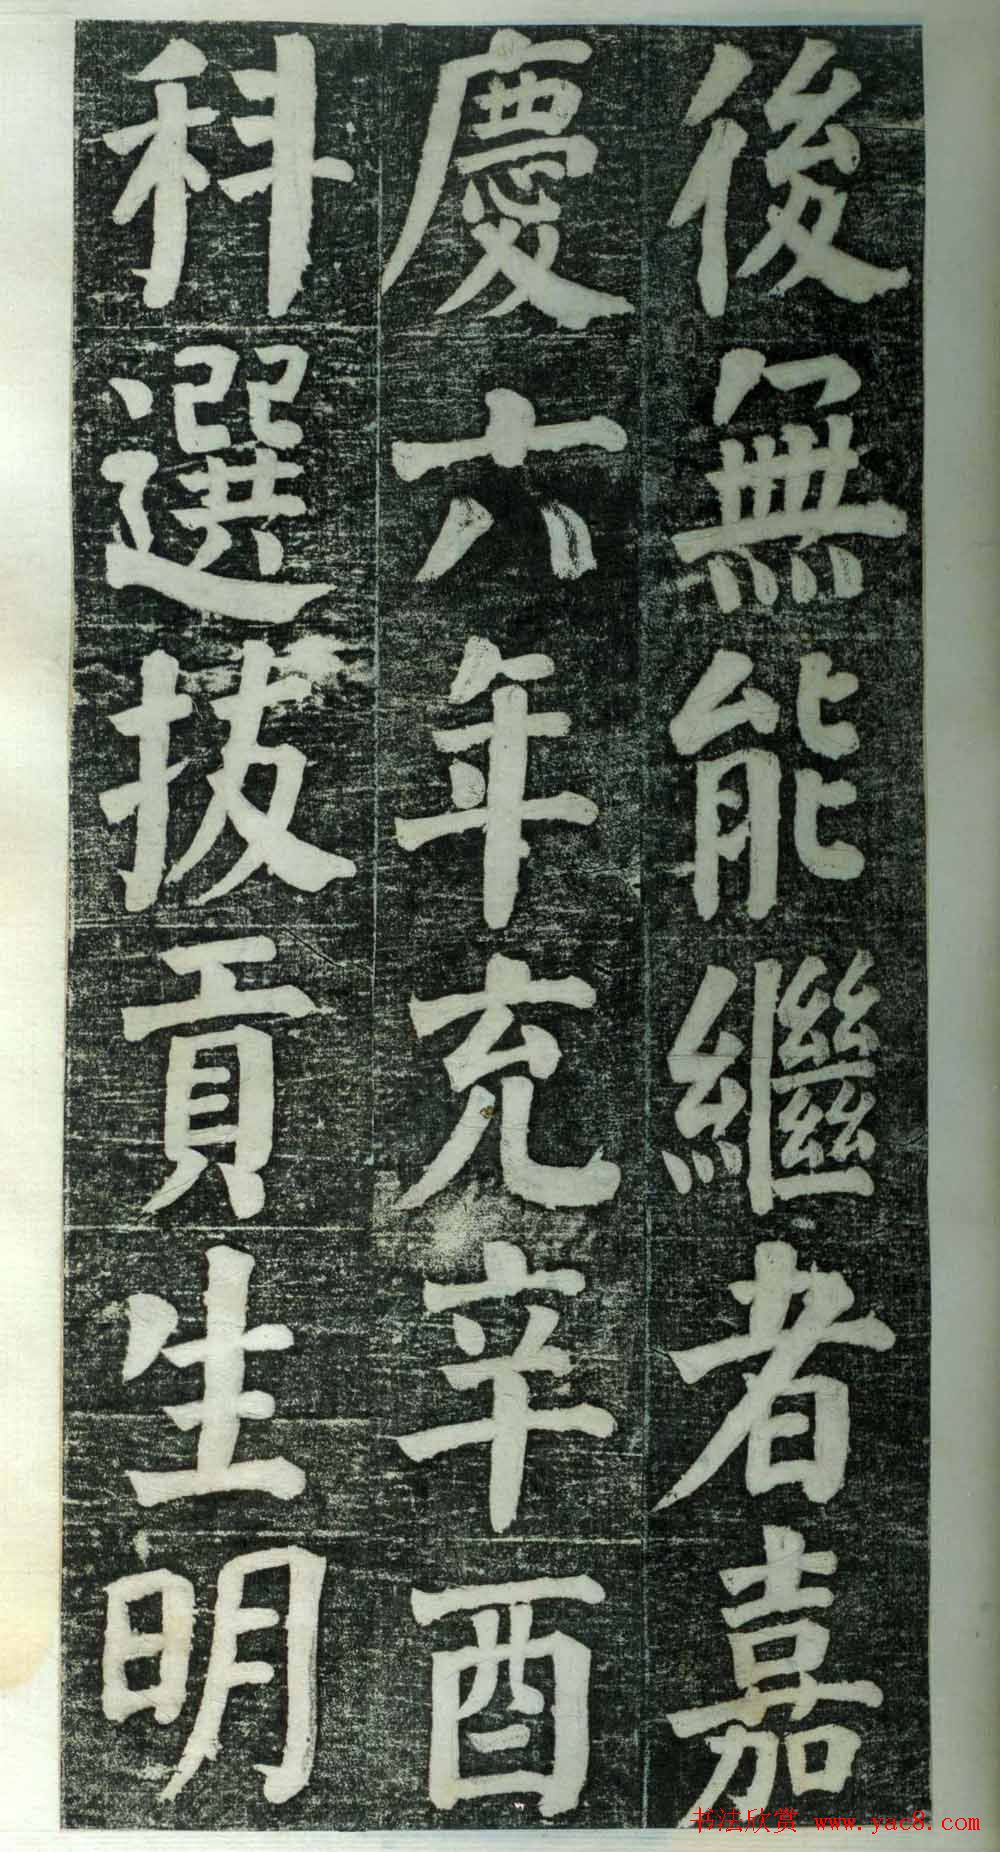 後無能繼者嘉
慶六年充辛酉
科選拔貢生明
书法欣赏 www.yac8.com